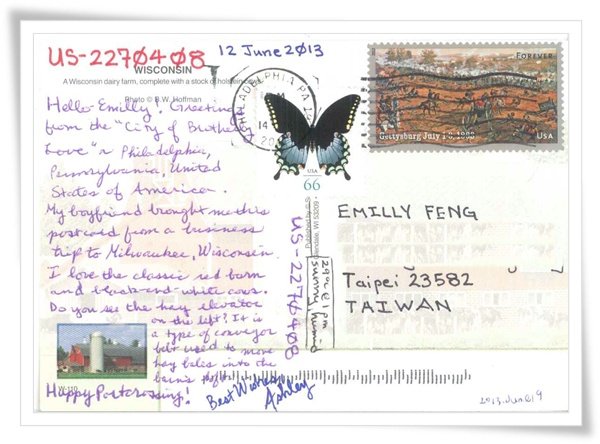 US-2270408
12 June 2013
WISCONSIN
A Wisconsin dairy farm, complete with a stock of holstein cows.
Photo © B.W. Hoffman
Hello Emilly! Greetings
from the "City of Brotherly
Love" ~ Philadelphia,
Pennsylvania, United
States of America.
My boyfriend brought me this
postcard from a business
trip to Milwaukee, Wisconsin.
I love the classic red barn
and black-and-white cows.
Do you see the hay elevator
on the left? It is
a type of conveyor
belt used to move
hay bales into the
barn's
Happy Postcrossing!
Best Wishes,
Ashley
W-110
PHILADELPHIA PA
14
USA
66
FOREVER
Gettysburg July 1-3, 1863
USA
Published by
WI 53209
US-2270408
29°C @ 1 pm
sunny, humid
EMILLY FENG
Taipei 23582
TAIWAN
2013.Jun.